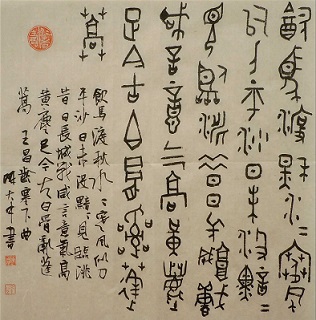 飲馬渡秋水〻寒風
似刀平沙日未沒黯〻
見臨洮昔日長城戰
咸言意氣高黃塵
足今古白骨亂蓬
蒿
飲馬渡秋水〻寒風似刀
平沙日未沒黯〻見臨洮
昔日長城戰咸言意氣高
黃塵足今古白骨亂蓬
蒿 王昌齡塞下曲